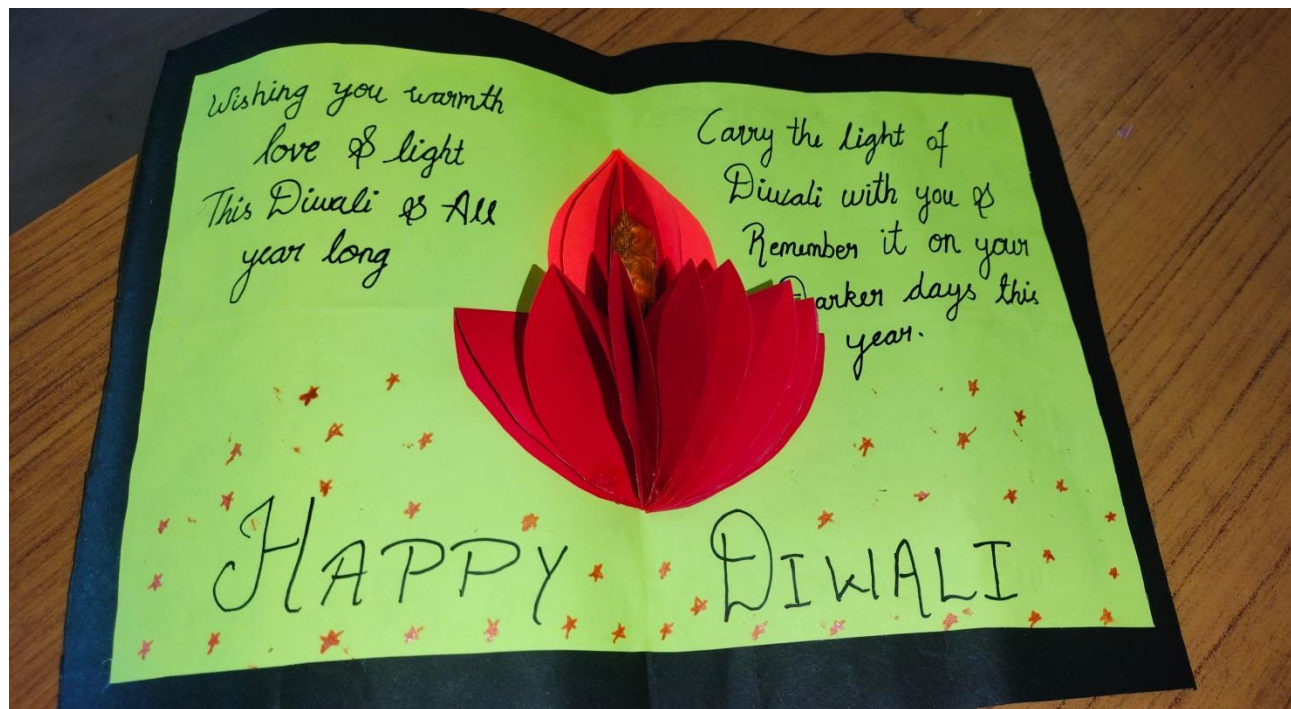 Wishing you warmth
love & light
This Diwali & All
year long
Carry the light of
Diwali with you &
Remember it on your
Darker days this
year.
HAPPY DIWALI